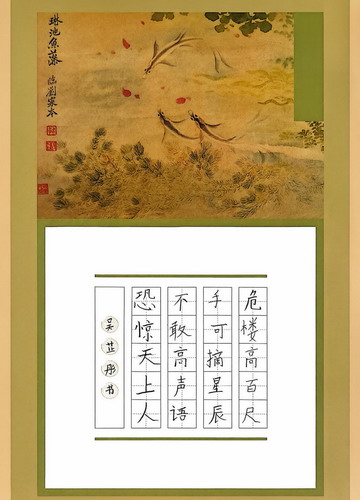 临刘寀本
危楼高百尺
手可摘星辰
不敢高声语
恐惊天上人
吴芷彤书